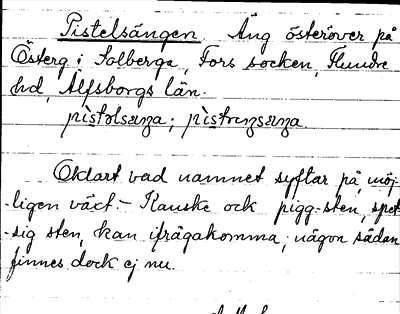 Pistelsängen Äng österöver på
Österg i Solberga, Fors socken, Flundre
hd, Älfsborgs län.
pistolsæŋa; pistrœŋsæŋa.
Oklart vad namnet syftar på, möj-
-ligen växt. - Kanske ock pigg-sten, spet
-sig sten, kan ifrågakomma; någon sådan
finnes dock ej nu.